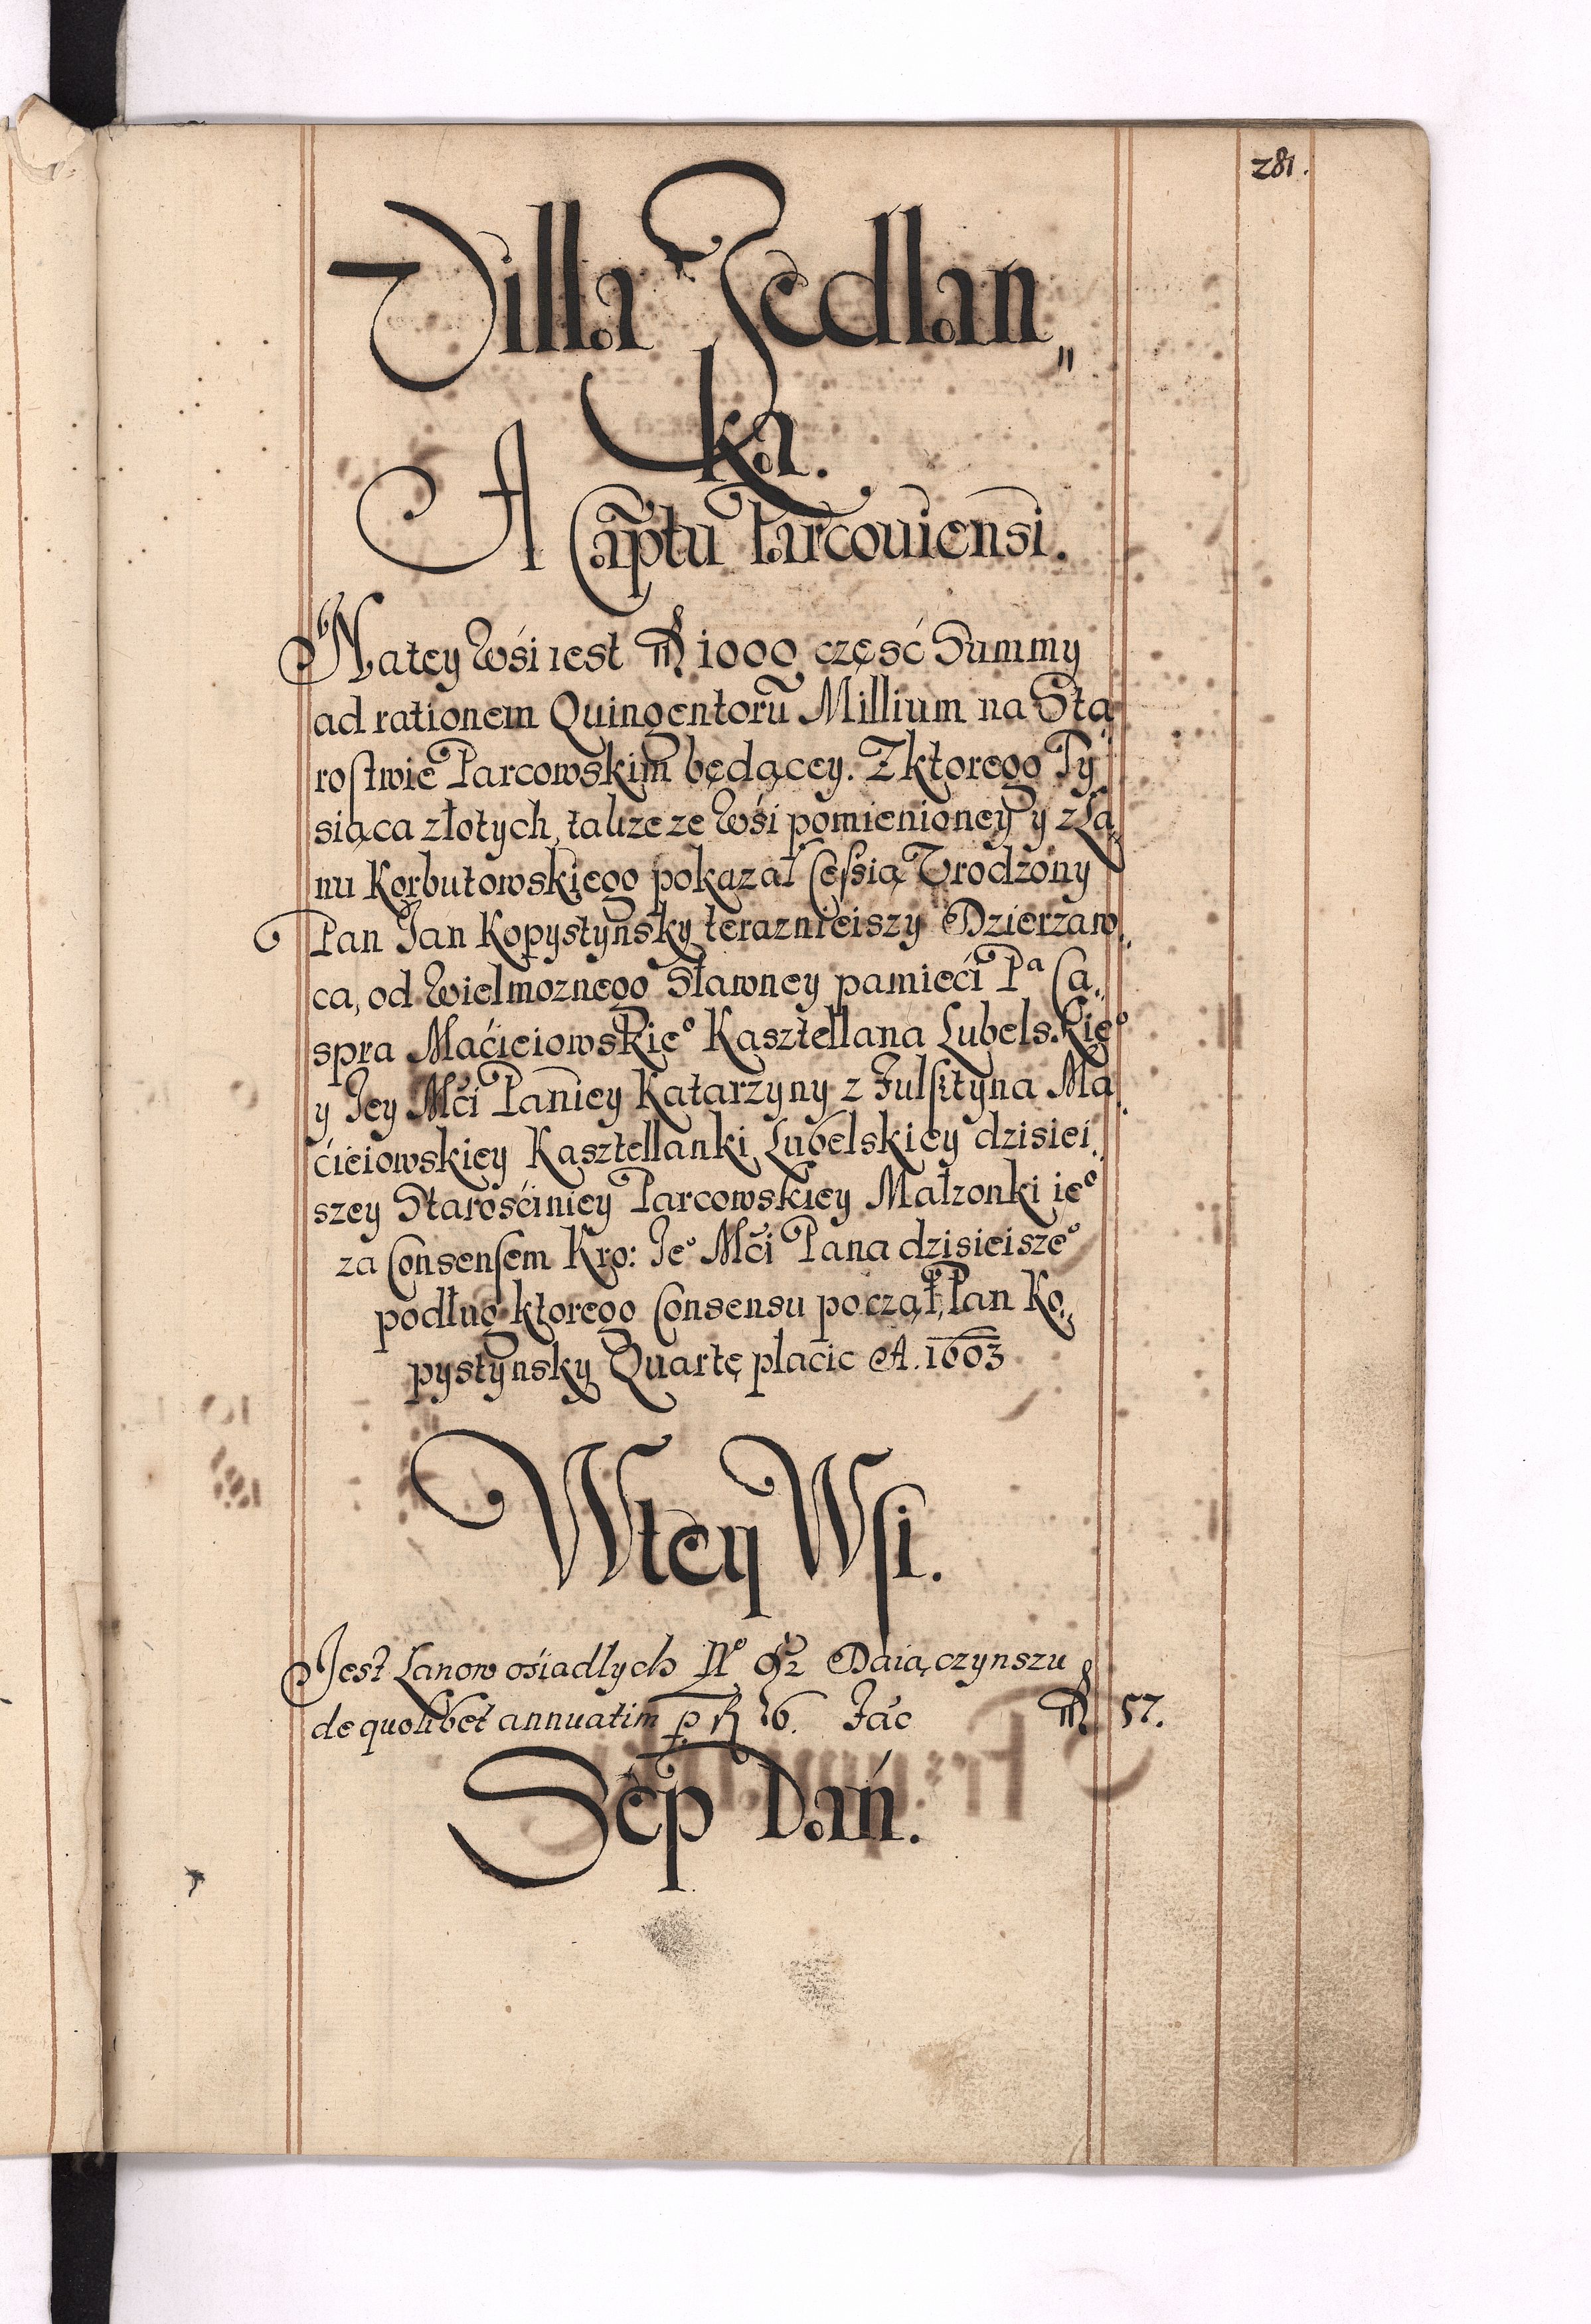 281.
Villa Jedlan„
ka.
A Captu Parcouiensi.
Na tey Wśi iest fl 1000 część Summy
ad rationem Quingentorũ Millium na Sta„
rostwie Parcowskim będącey. Z ktorego Ty„
siąca złotych, takze ze Wśi pomienioney y z Ła„
nu Korbutowskiego pokazał Cessią Vrodzony
Pan Jan Kopystynsky teraznieiszy Dzierzaw„
ca, od Wielmoznego Sławney pamieći Pª Ca„
spra Maćieiowskieº Kasztellana Lubelskieº
y Jey Mći Paniey Katarzyny z Fulsztyna Ma„
ćieiowskiey Kasztellanki Lubelskiey dzisiei„
szey Starośćiniey Parcowskiey Małzonki ieº
za Consensem Kro: Jeº Mći Pana dzisieiszeº
podług ktorego Consensu począł Pan Ko„
pystynsky Quartę płaćic A. 1603
W tey Wsi.
Jest Łanow ośiadłych Nº 9½ Daią czynszu
de quolibet annuatim p. fl 6. Fac fl 57.
Sep Dań.